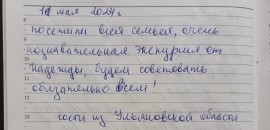 11 мая 2024г
посетили всей семьёй, очень
познавательная экскурсия от
Надежды, будем советовать
обязательно всем!
гости из Ульяновской области